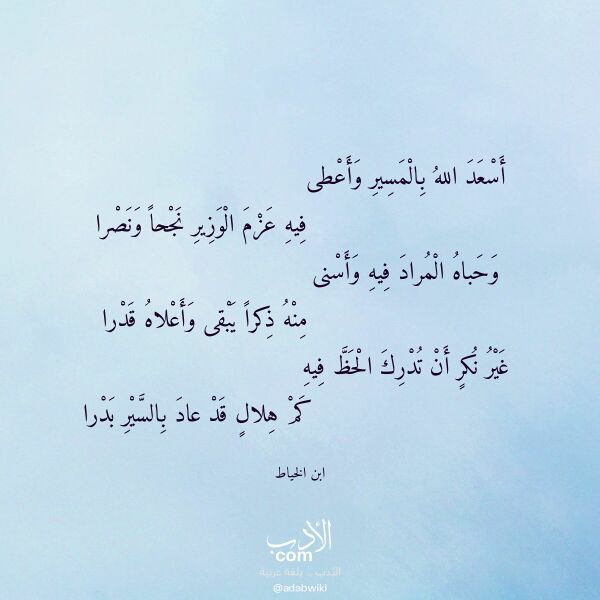 أَسْعَدَ اللهُ بِالْمَسِيرِ وَأَعْطى
فِيهِ عَزْمَ الْوَزِيرِ نَجْحاً وَنَصْرا
وَحَباهُ الْمُرادَ فِيهِ وَأَسْنى
مِنْهُ ذِكراً يَبْقى وَأَعْلاهُ قَدْرا
غَيْرُ نُكرٍ أَنْ تُدْرِكَ الْحَظَّ فِيهِ
كَمْ هِلالٍ قَدْ عادَ بِالسَّيْرِ بَدْرا
ابن الخياط
الأدب
com
الأدب .. بلغة عربية
@adabwiki